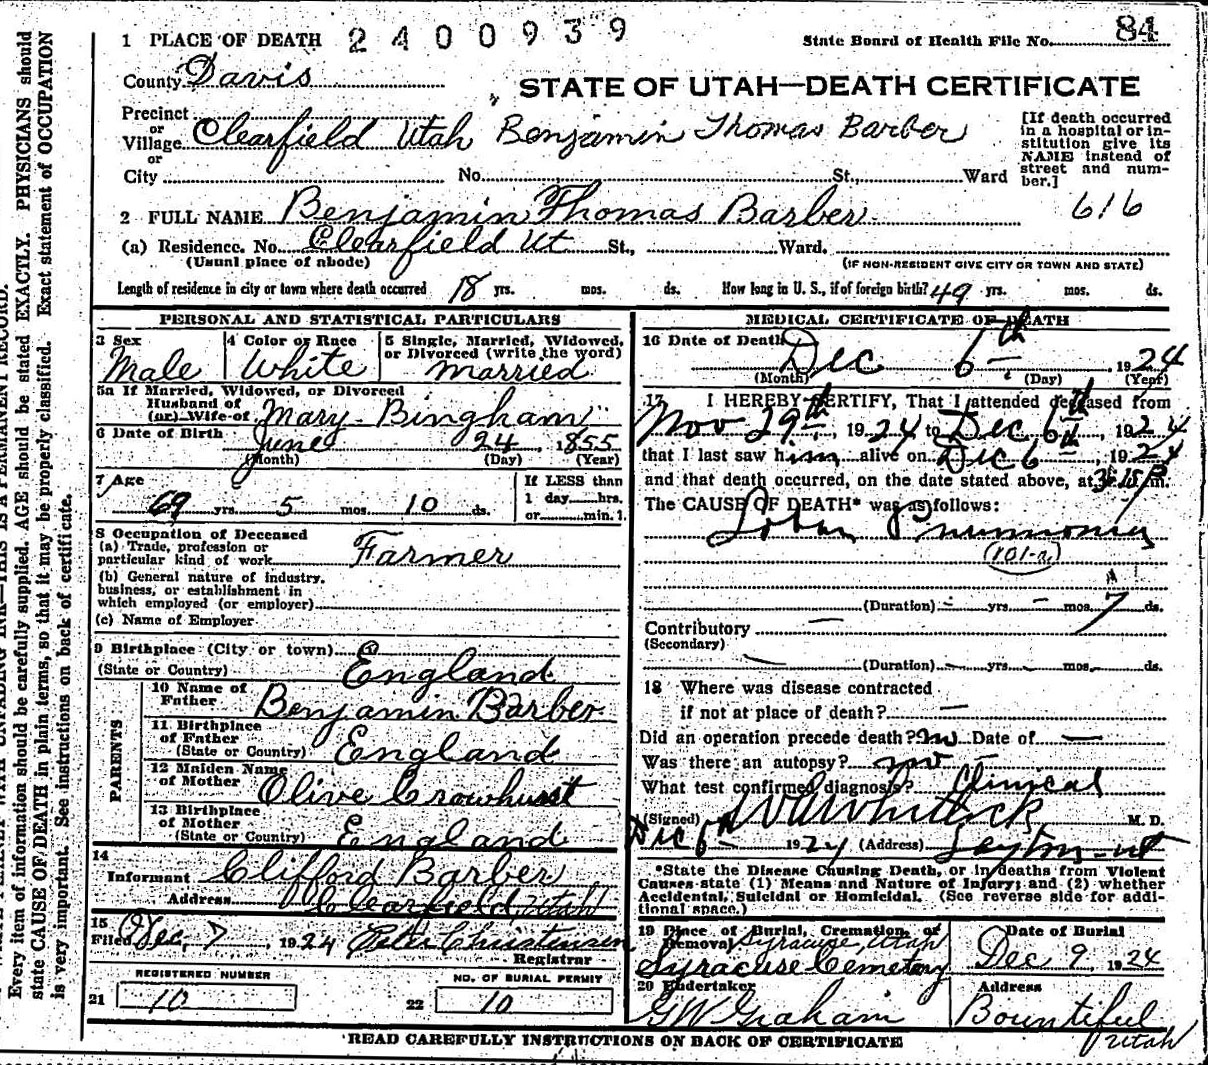 1 PLACE OF DEATH 2400939 State Board of Health File No. 84
County Davis STATE OF UTAH—DEATH CERTIFICATE
Precinct
or
Village Clearfield Utah Benjamin Thomas Barber
or
City No. St., Ward
[If death occurred
in a hospital or in-
stitution give its
NAME instead of
street and num-
ber.]
616
2 FULL NAME Benjamin Thomas Barber
(a) Residence. No. Clearfield Ut St., Ward.
(Usual place of abode) (IF NON-RESIDENT GIVE CITY OR TOWN AND STATE)
Length of residence in city or town where death occurred 18 yrs. mos. ds. How long in U. S., if of foreign birth? 49 yrs. mos. ds.
PERSONAL AND STATISTICAL PARTICULARS
3 Sex 4 Color or Race 5 Single, Married, Widowed,
or Divorced (write the word)
Male White married
5a If Married, Widowed, or Divorced
Husband of
(or) Wife of Mary Bingham
6 Date of Birth June 24, 1855
(Month) (Day) (Year)
7 Age If LESS than
1 day hrs.
or min.
69 yrs. 5 mos. 10 ds.
8 Occupation of Deceased
(a) Trade, profession or
particular kind of work Farmer
(b) General nature of industry,
business, or establishment in
which employed (or employer)
(c) Name of Employer
9 Birthplace (City or town)
(State or Country) England
PARENTS
10 Name of
Father Benjamin Barber
11 Birthplace
of Father
(State or Country) England
12 Maiden Name
of Mother Olive Crowhurst
13 Birthplace
of Mother
(State or Country) England
14
Informant Clifford Barber
Address Clearfield, Utah
15
Filed Dec. 7, 1924 Peter Christensen
Registrar
REGISTERED NUMBER NO. OF BURIAL PERMIT
21 10 22 10
MEDICAL CERTIFICATE OF DEATH
16 Date of Death Dec 6th 1924
(Month) (Day) (Year)
17 I HEREBY CERTIFY, That I attended deceased from
Nov 29th, 1924 to Dec 6th, 1924
that I last saw him alive on Dec 6th, 1924
and that death occurred, on the date stated above, at 3:15 P m.
The CAUSE OF DEATH* was as follows:
Lobar Pneumonia
(101-a)
(Duration) — yrs. — mos. 7 ds.
Contributory —
(Secondary)
— (Duration) — yrs. — mos. — ds.
18 Where was disease contracted
if not at place of death? —
Did an operation precede death? no Date of —
Was there an autopsy? no
What test confirmed diagnosis? Clinical
(Signed) M. D.
Dec 6th 1924 (Address) Layton - ut
*State the Disease Causing Death, or in deaths from Violent
Causes state (1) Means and Nature of Injury; and (2) whether
Accidental, Suicidal or Homicidal. (See reverse side for addi-
tional space.)
19 Place of Burial, Cremation, or
Removal Syracuse, Utah
Syracuse Cemetery
Date of Burial
Dec 9, 1924
20 Undertaker Address
GW Graham Bountiful
Utah
READ CAREFULLY INSTRUCTIONS ON BACK OF CERTIFICATE
Every item of information should be carefully supplied. AGE should be stated EXACTLY. PHYSICIANS should
state CAUSE OF DEATH in plain terms, so that it may be properly classified. Exact statement of OCCUPATION
is very important. See instructions on back of certificate.